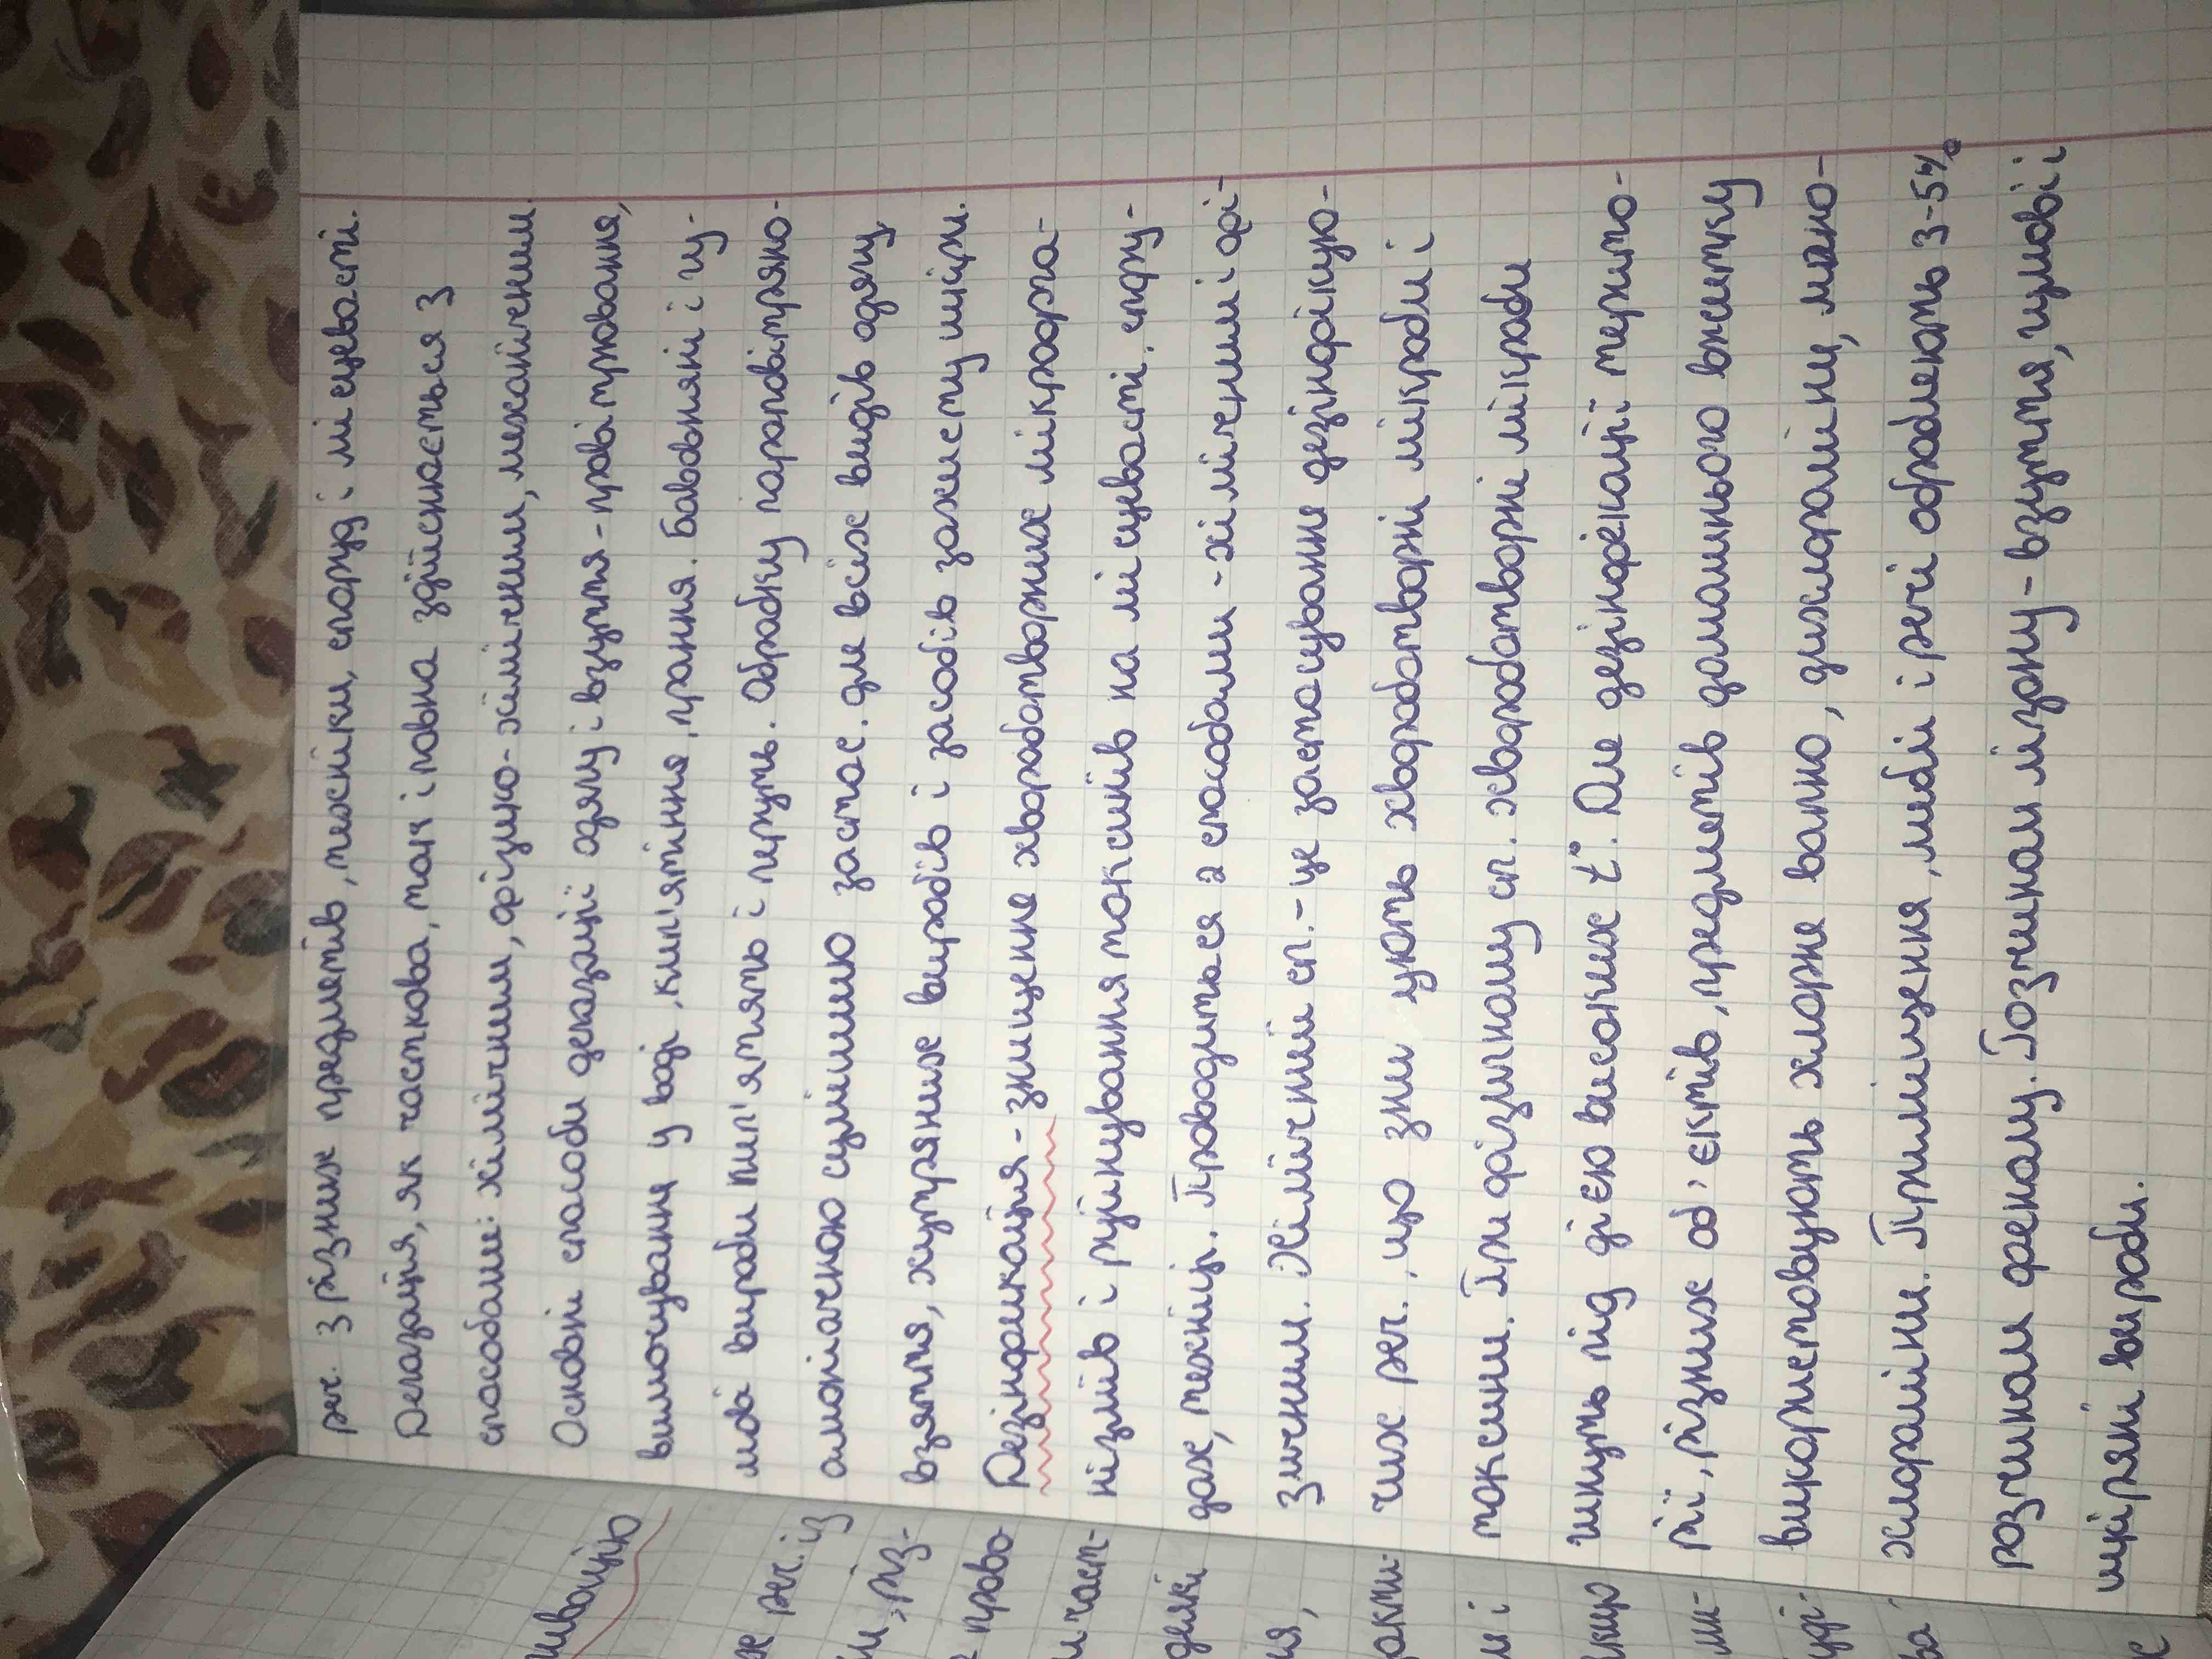 реч. з різних предметів, техніки, споруд і місцевості.
Дегазація, як часткова, так і повна здійснюється 3
способами: хімічним, фізико-хімічним, механічним.
Основні способи дегазації одягу і взуття - провітрювання,
вимочування у воді, кип'ятіння, прання. Бавовняні і гу-
мові вироби кип'ятять і перуть. Обробку пароповітряно-
аміачною сумішшю застос. для всіх видів одягу
взяття, хутряних виробів і засобів захисту шкіри.
Дезінфикація - знищення хвороботворних мікроорга-
нізмів і руйнування токсинів на місцевості, спору-
дах, техніці. Проводиться 2 способами - хімічними і фі-
зичним. Хімічний сп. - це застосування дезінфікую-
чих реч., що знищують хвороботворні мікроби і
токсини. При фізичному сп. хвороботворні мікроби
гинуть під дією високих t°. Для дезінфекації терито-
рії, різних об'єктів, предметів домашнього вжитку
використовують хлорне вапно, дихлораміни, моно-
хлораміни. Приміщення, меблі і речі обробляють 3-5%
розчином фенолу. Розчином лізолу - взуття, гумові і
шкіряні вироби.
реч. із